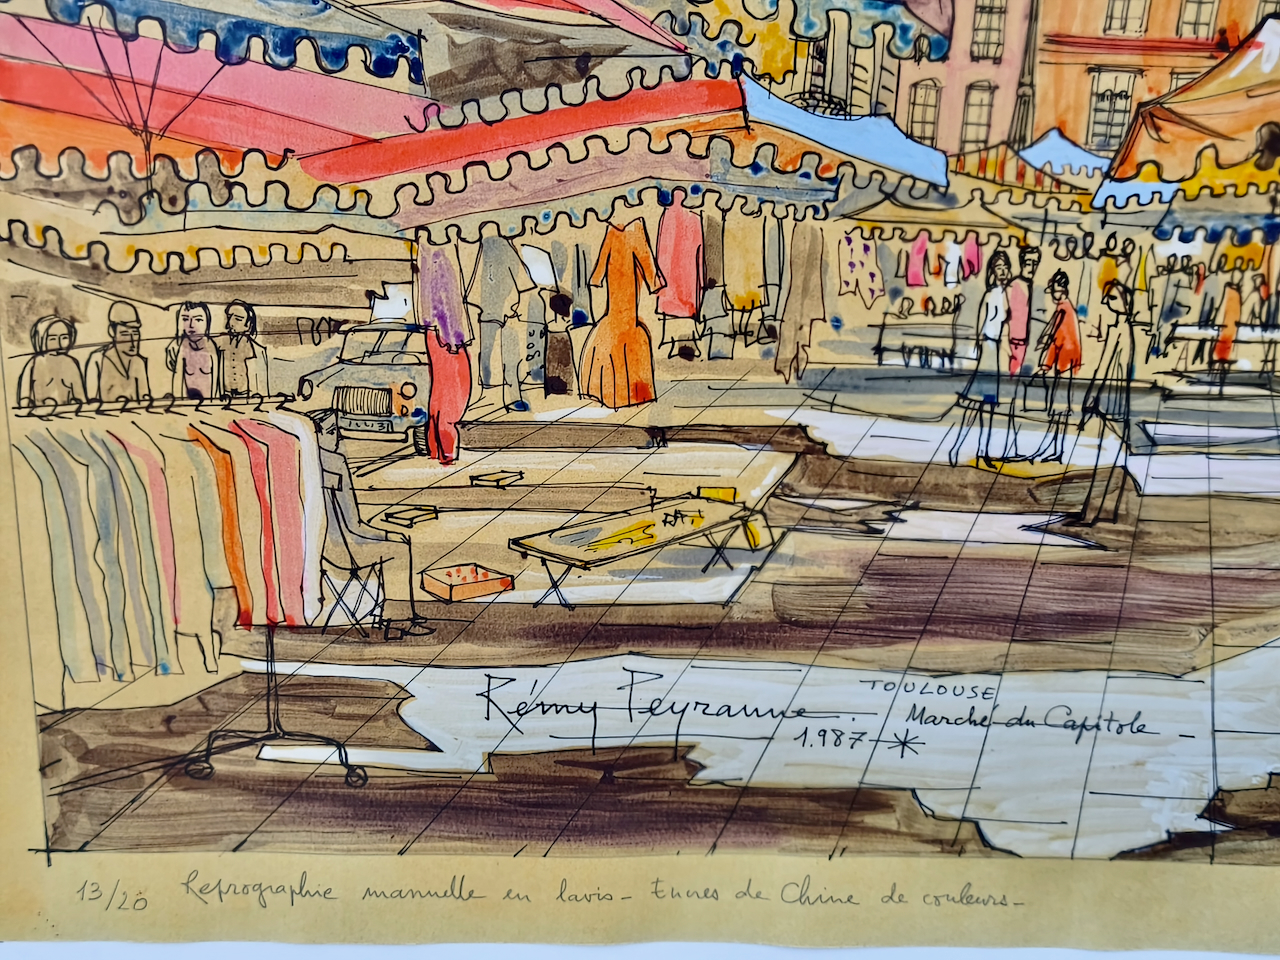 Rémy Peyranne.
TOULOUSE
Marché du Capitole -
1.987 *
13/20 Reprographie manuelle en lavis - Encres de Chine de couleurs -